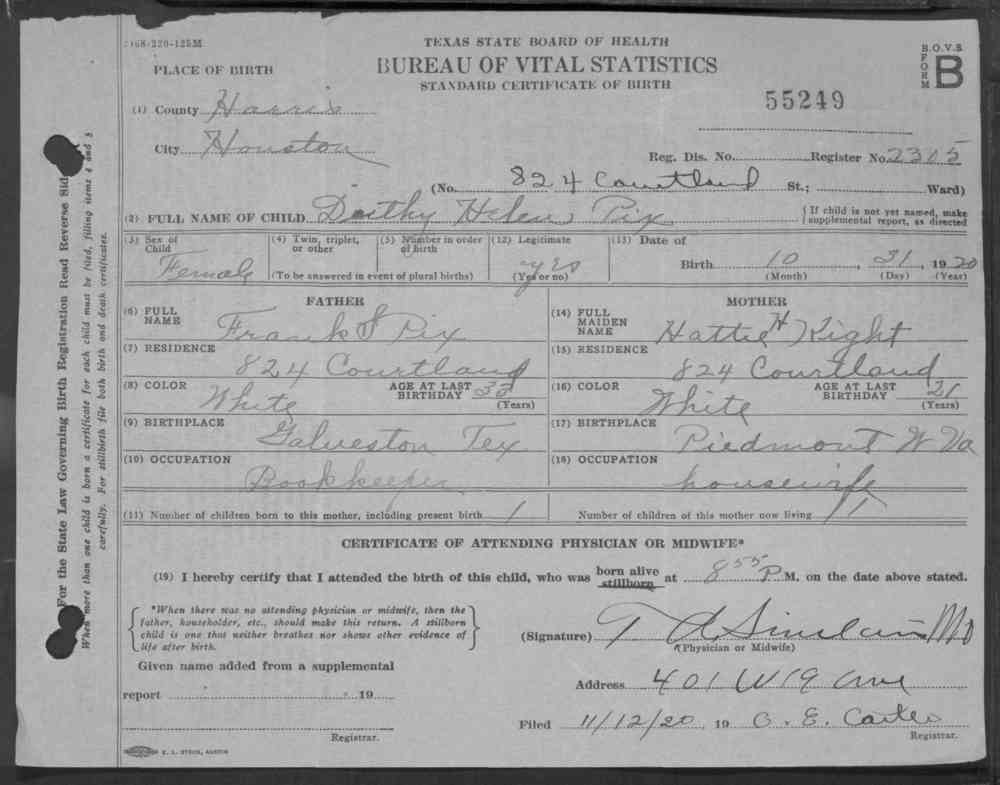 TEXAS STATE BOARD OF HEALTH
BUREAU OF VITAL STATISTICS
STANDARD CERTIFICATE OF BIRTH
B.O.V.S
FORM B
55249
PLACE OF BIRTH
(1) County Harris
City Houston
Reg. Dis. No. Register No. 2305
(No. 824 Courtland St.; Ward)
(2) FULL NAME OF CHILD Helen Pix
{If child is not yet named, make supplemental report, as directed
(3) Sex of Child Female
(4) Twin, triplet, or other
(5) Number in order of birth
(To be answered in event of plural births)
(12) Legitimate yes (Yes or no)
(13) Date of Birth 10 (Month), 31 (Day) 1920 (Year)
FATHER
(6) FULL NAME Frank S Pix
(7) RESIDENCE 824 Courtland
(8) COLOR White
AGE AT LAST BIRTHDAY (Years)
(9) BIRTHPLACE Galveston Tex
(10) OCCUPATION Bookkeeper
(11) Number of children born to this mother, including present birth 1
MOTHER
(14) FULL MAIDEN NAME Hattie H Kight
(15) RESIDENCE 824 Courtland
(16) COLOR White
AGE AT LAST BIRTHDAY 21 (Years)
(17) BIRTHPLACE Piedmont W Va
(18) OCCUPATION housewife
Number of children of this mother now living 1
CERTIFICATE OF ATTENDING PHYSICIAN OR MIDWIFE*
(19) I hereby certify that I attended the birth of this child, who was born alive stillborn at 8 55 P M. on the date above stated.
{*When there was no attending physician or midwife, then the
father, householder, etc., should make this return. A stillborn
child is one that neither breathes nor shows other evidence of
life after birth.}
(Signature) Sinclair MD
(Physician or Midwife)
Given name added from a supplemental
report 19
Registrar.
Address 401 W 19 Ave
Filed 11/12/20, 19 C. E. Carter
Registrar.
E. L. STECK, AUSTIN
For the State Law Governing Birth Registration Read Reverse Sid
When more than one child is born a certificate for each child must be filed, filling items 4 and 5
carefully. For stillbirth file both birth and death certificates.